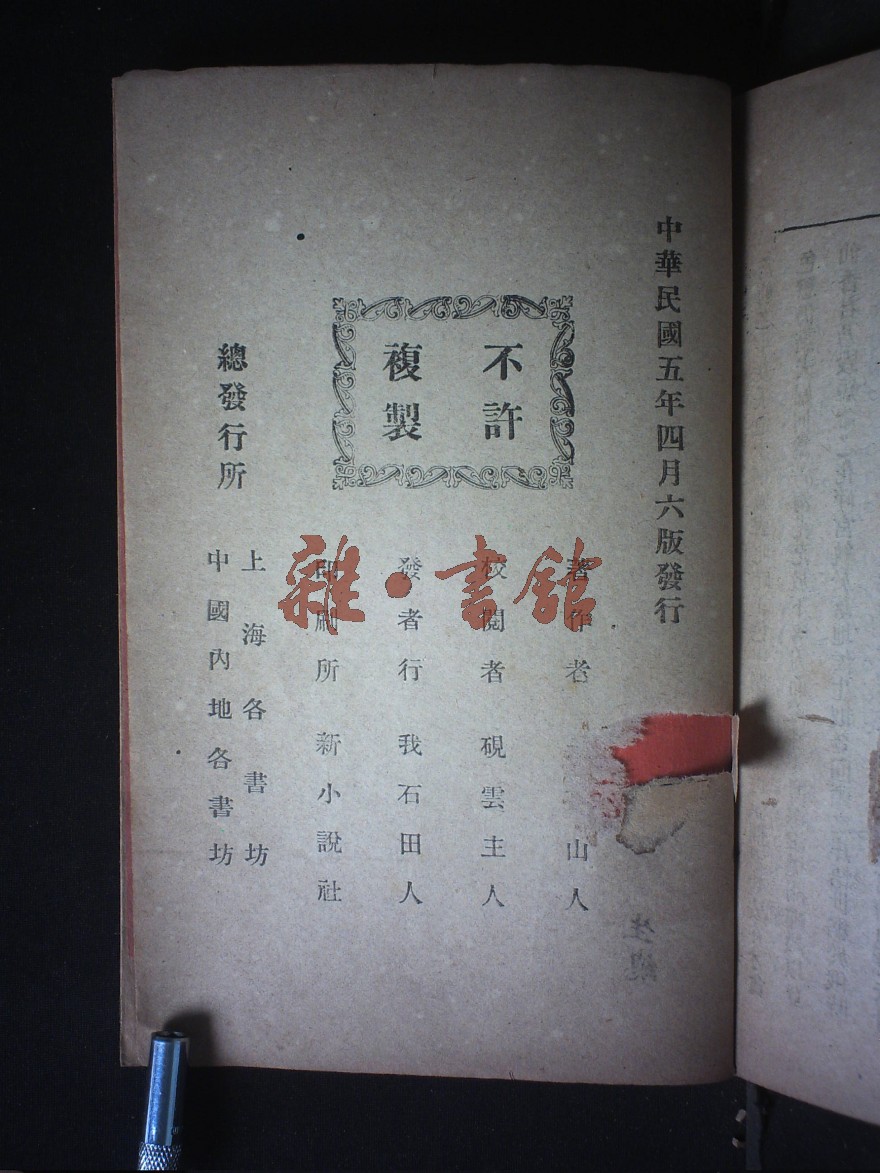 中華民國五年四月六版發行
不許
複製
著作者 山人
校閱者 硯雲主人
發者行 我石田人
印刷所 新小說社
總發行所
上海各書坊
中國內地各書坊
雜·書館